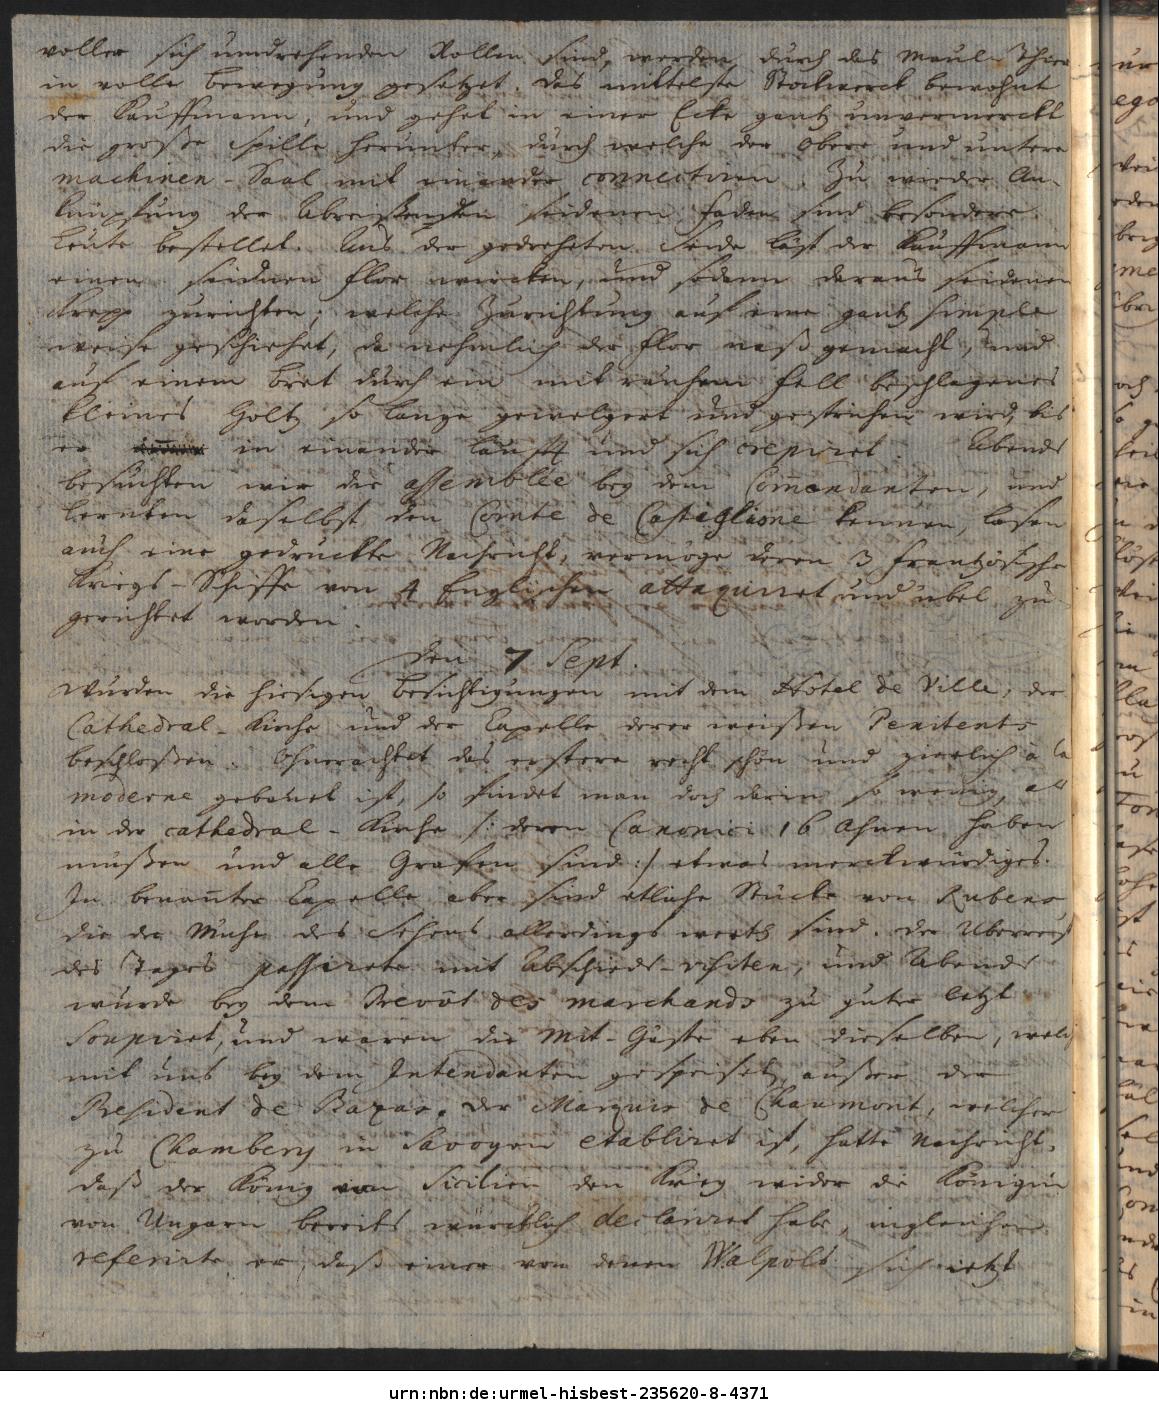 voller sich umdrehenden Rollen sind, werden durch das Maul-Thier
in volle Bewegung gesetzet. Das mittelste Stockwerck bewohnt
der Kauffmann, und gehet in einer Ecke gantz unvermerckt
die große Spille herunter, durch welche der obere und untere
machinen-Saal mit einander connectiren. Zu wieder An-
knüpfung der abreißenden seidenen Faden sind besondere
Leute bestellet. Aus der gedreheten Seide läst der Kauffmann
einen seidnen Flor wircken, und sodann daraus seidenen
Krepp zurichten; welche Zurichtung auf eine gantz simple
weise geschiehet, da nehmlich der Flor naß gemacht, und
auf einem Bret durch ein mit rauhem Fell beschlagenes
kleines Holtz so lange gewelgert und gestrichen wird, bis
er in einander läufft und sich crepiret. Abends
besuchten wir die assemblée bey dem Commendanten, und
lernten daselbst den Comte de Castiglione kennen, lasen
auch eine gedruckte Nachricht, vermöge deren 3 Frantzösische
Kriegs-Schiffe von 4 Englischen attaquiret und übel zu-
gerichtet worden.
Den 7 Sept.
Wurden die hiesigen Besichtigungen mit dem Hotel de Ville, der
Cathedral-Kirche und der Capelle derer weißen Penitents
beschloßen. Ohnerachtet das erstere recht schön und zierlich à la
moderne gebauet ist, so findet man doch darin so wenig, als
in der cathedral-Kirche /: deren Canonici 16 Ahnen haben
müßen und alle Grafen sind :/ etwas merckwürdiges.
In benannter Capelle aber sind etliche Stücke von Rubens
die der Mühe des Sehens allerdings werth sind. Der Überrest
des Tages passirete mit Abschieds-visiten, und Abends
wurde bey dem Prevôt des marchands zu guter letzt
soupiret, und waren die Mit-Gäste eben dieselben, welche
mit uns bey dem Intendanten gespeiset, außer der
President de Bazas. Der Marquis de Chaumont, welcher
zu Chambery in Savoyen etabliret ist, hatte Nachricht,
daß der König von Sicilien den Krieg wider die Königin
von Ungarn bereits würcklich declariret habe, ingleichen
referirte er, daß einer von denen Walpols sich jetzt